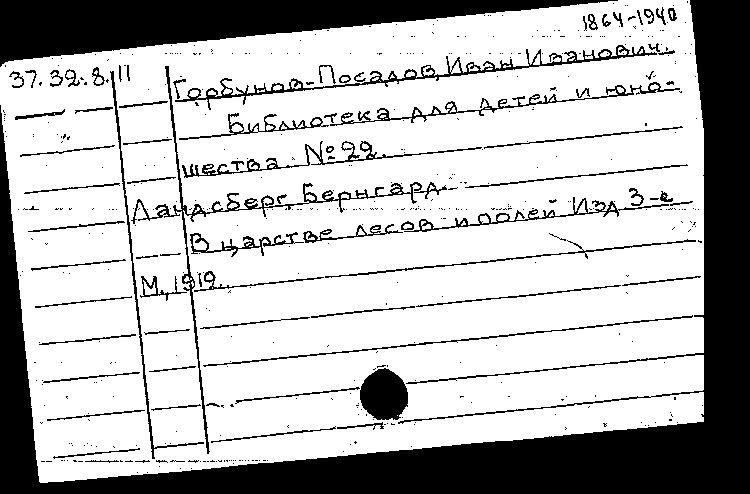 1864-1940
37.32.8.11
Горбунов-Посадов, Иван Иванович.
Библиотека для детей и юно-
шества. №22.
Ландсберг, Бернгард.
В царстве лесов и полей Изд 3-е
М., 1912.